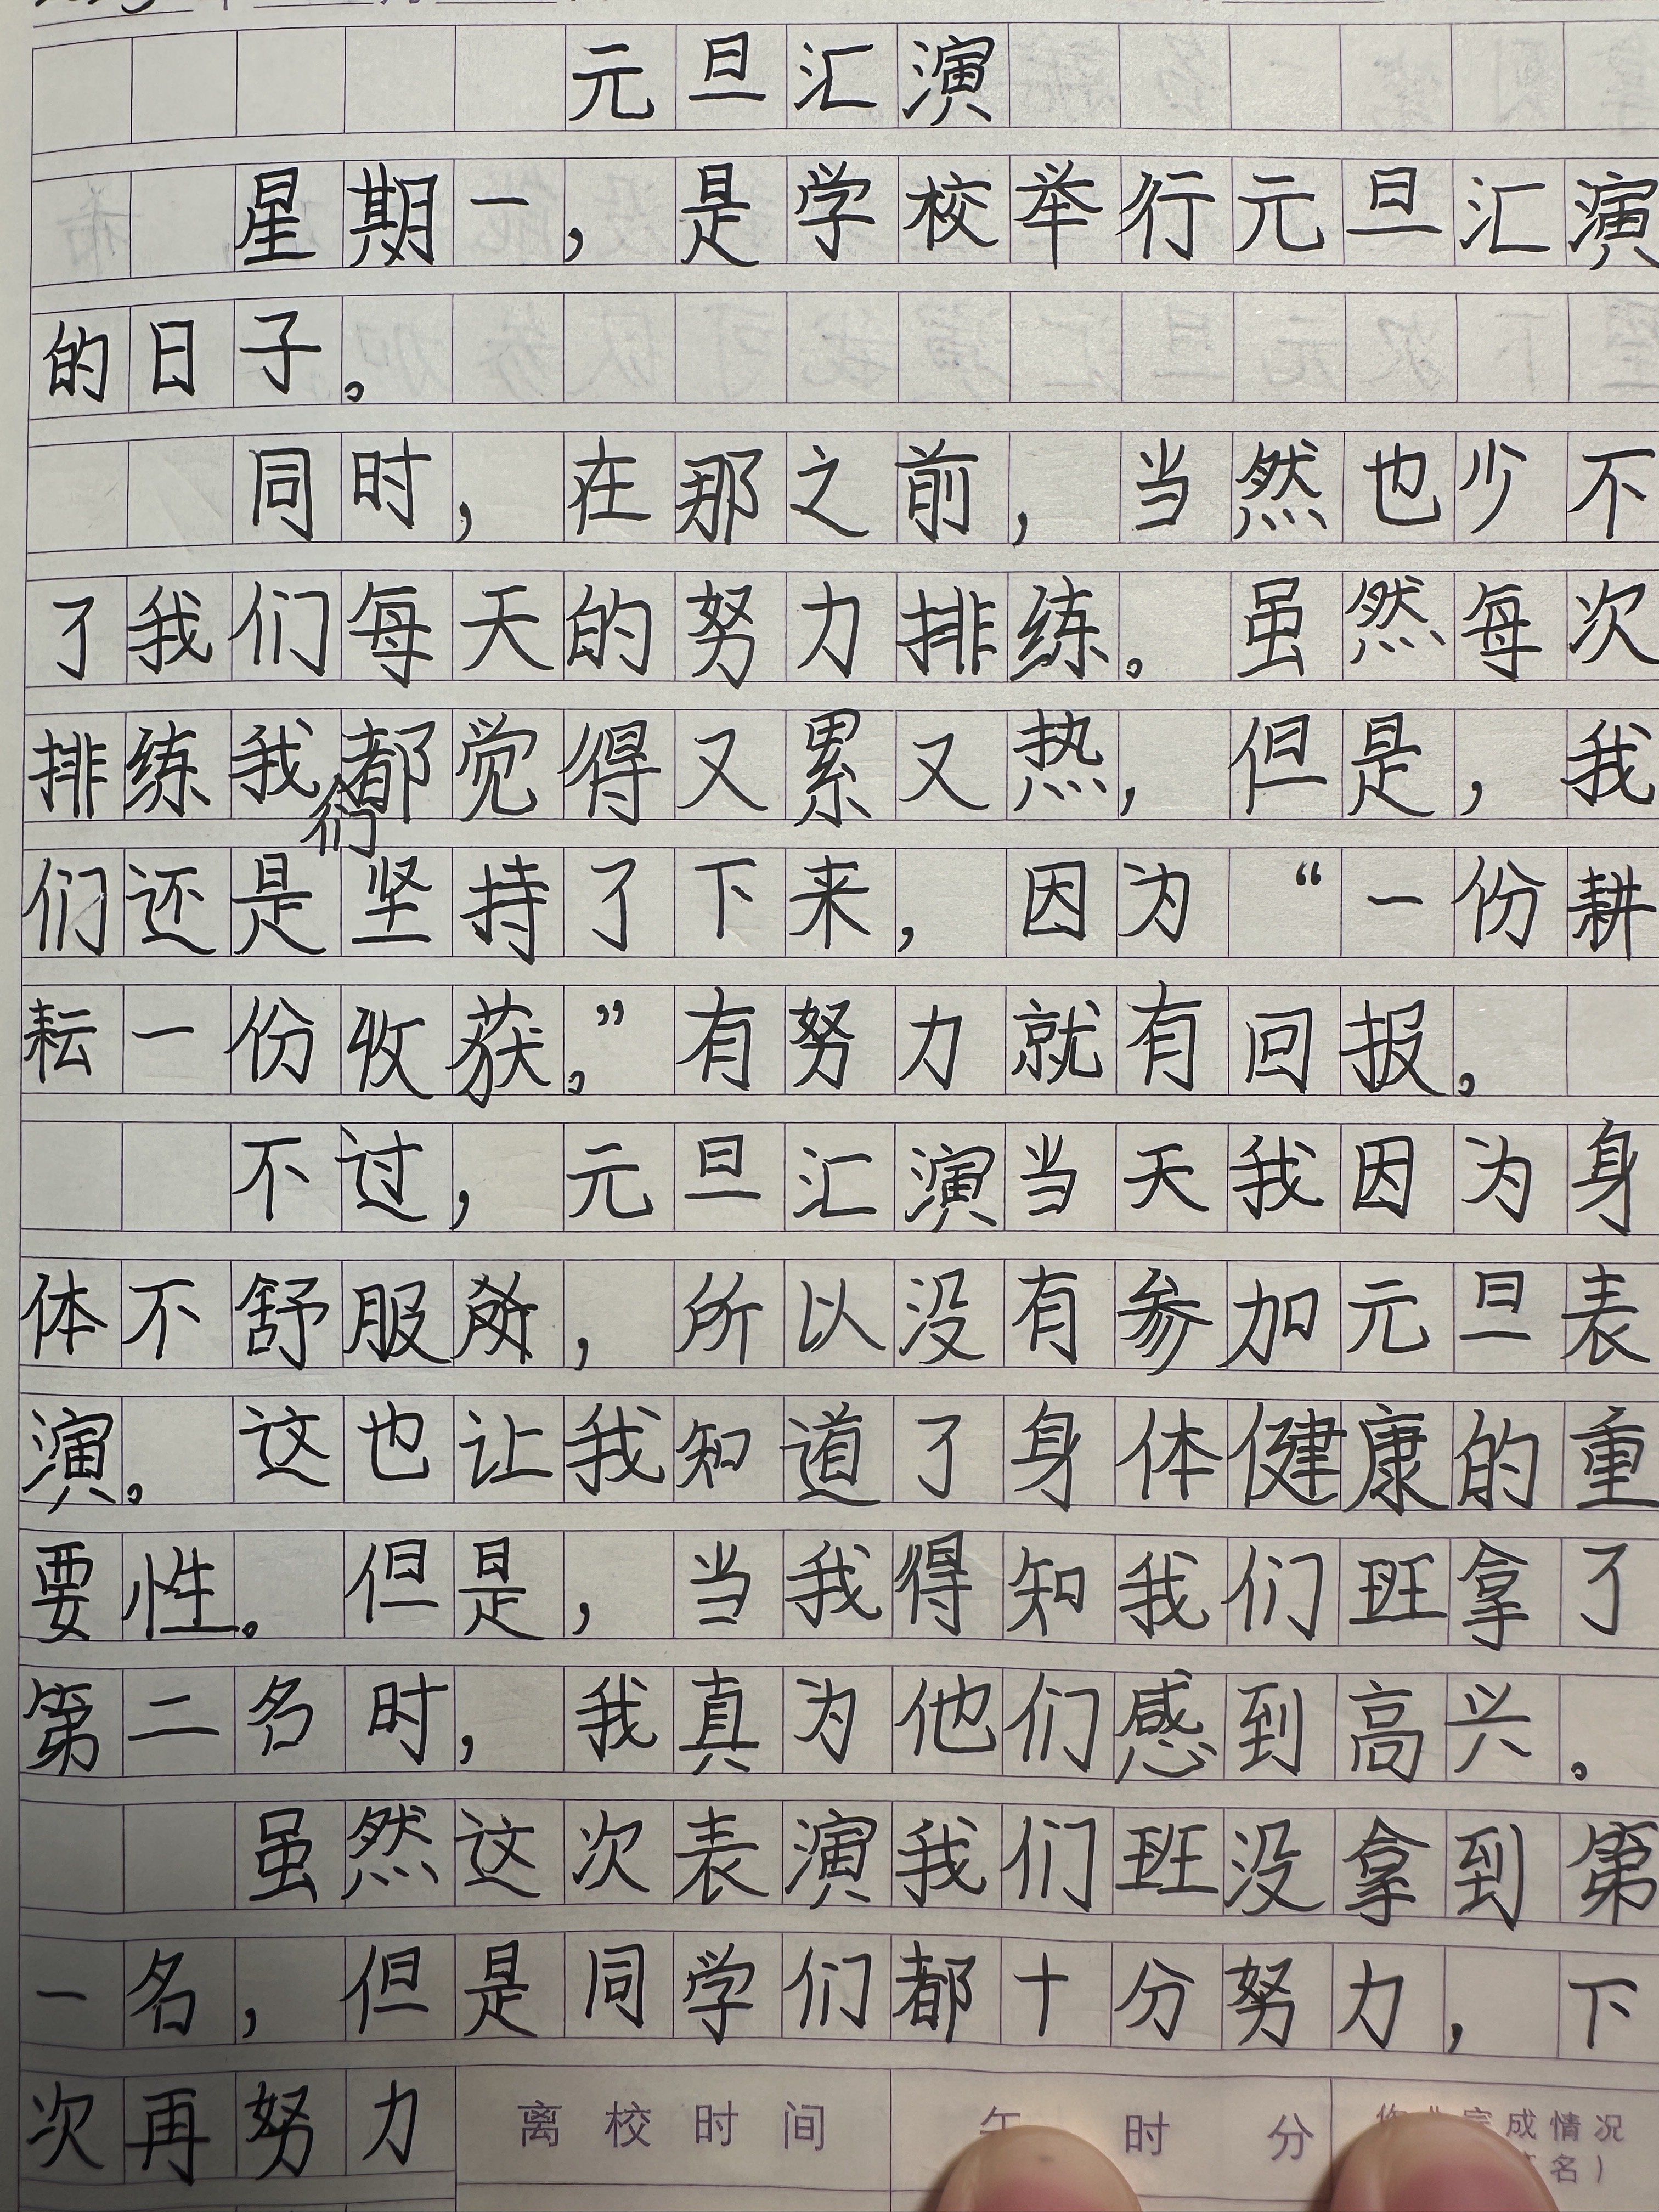 元旦汇演
星期一，是学校举行元旦汇演
的日子。
同时，在那之前，当然也少不
了我们每天的努力排练。虽然每次
排练我们都觉得又累又热，但是，我
们还是坚持了下来，因为“一份耕
耘一份收获。”有努力就有回报。
不过，元旦汇演当天我因为身
体不舒服，所以没有参加元旦表
演。这也让我知道了身体健康的重
要性。但是，当我得知我们班拿了
第二名时，我真为他们感到高兴。
虽然这次表演我们班没拿到第
一名，但是同学们都十分努力，下
次再努力
离校时间 午 时 分 成情况
名）